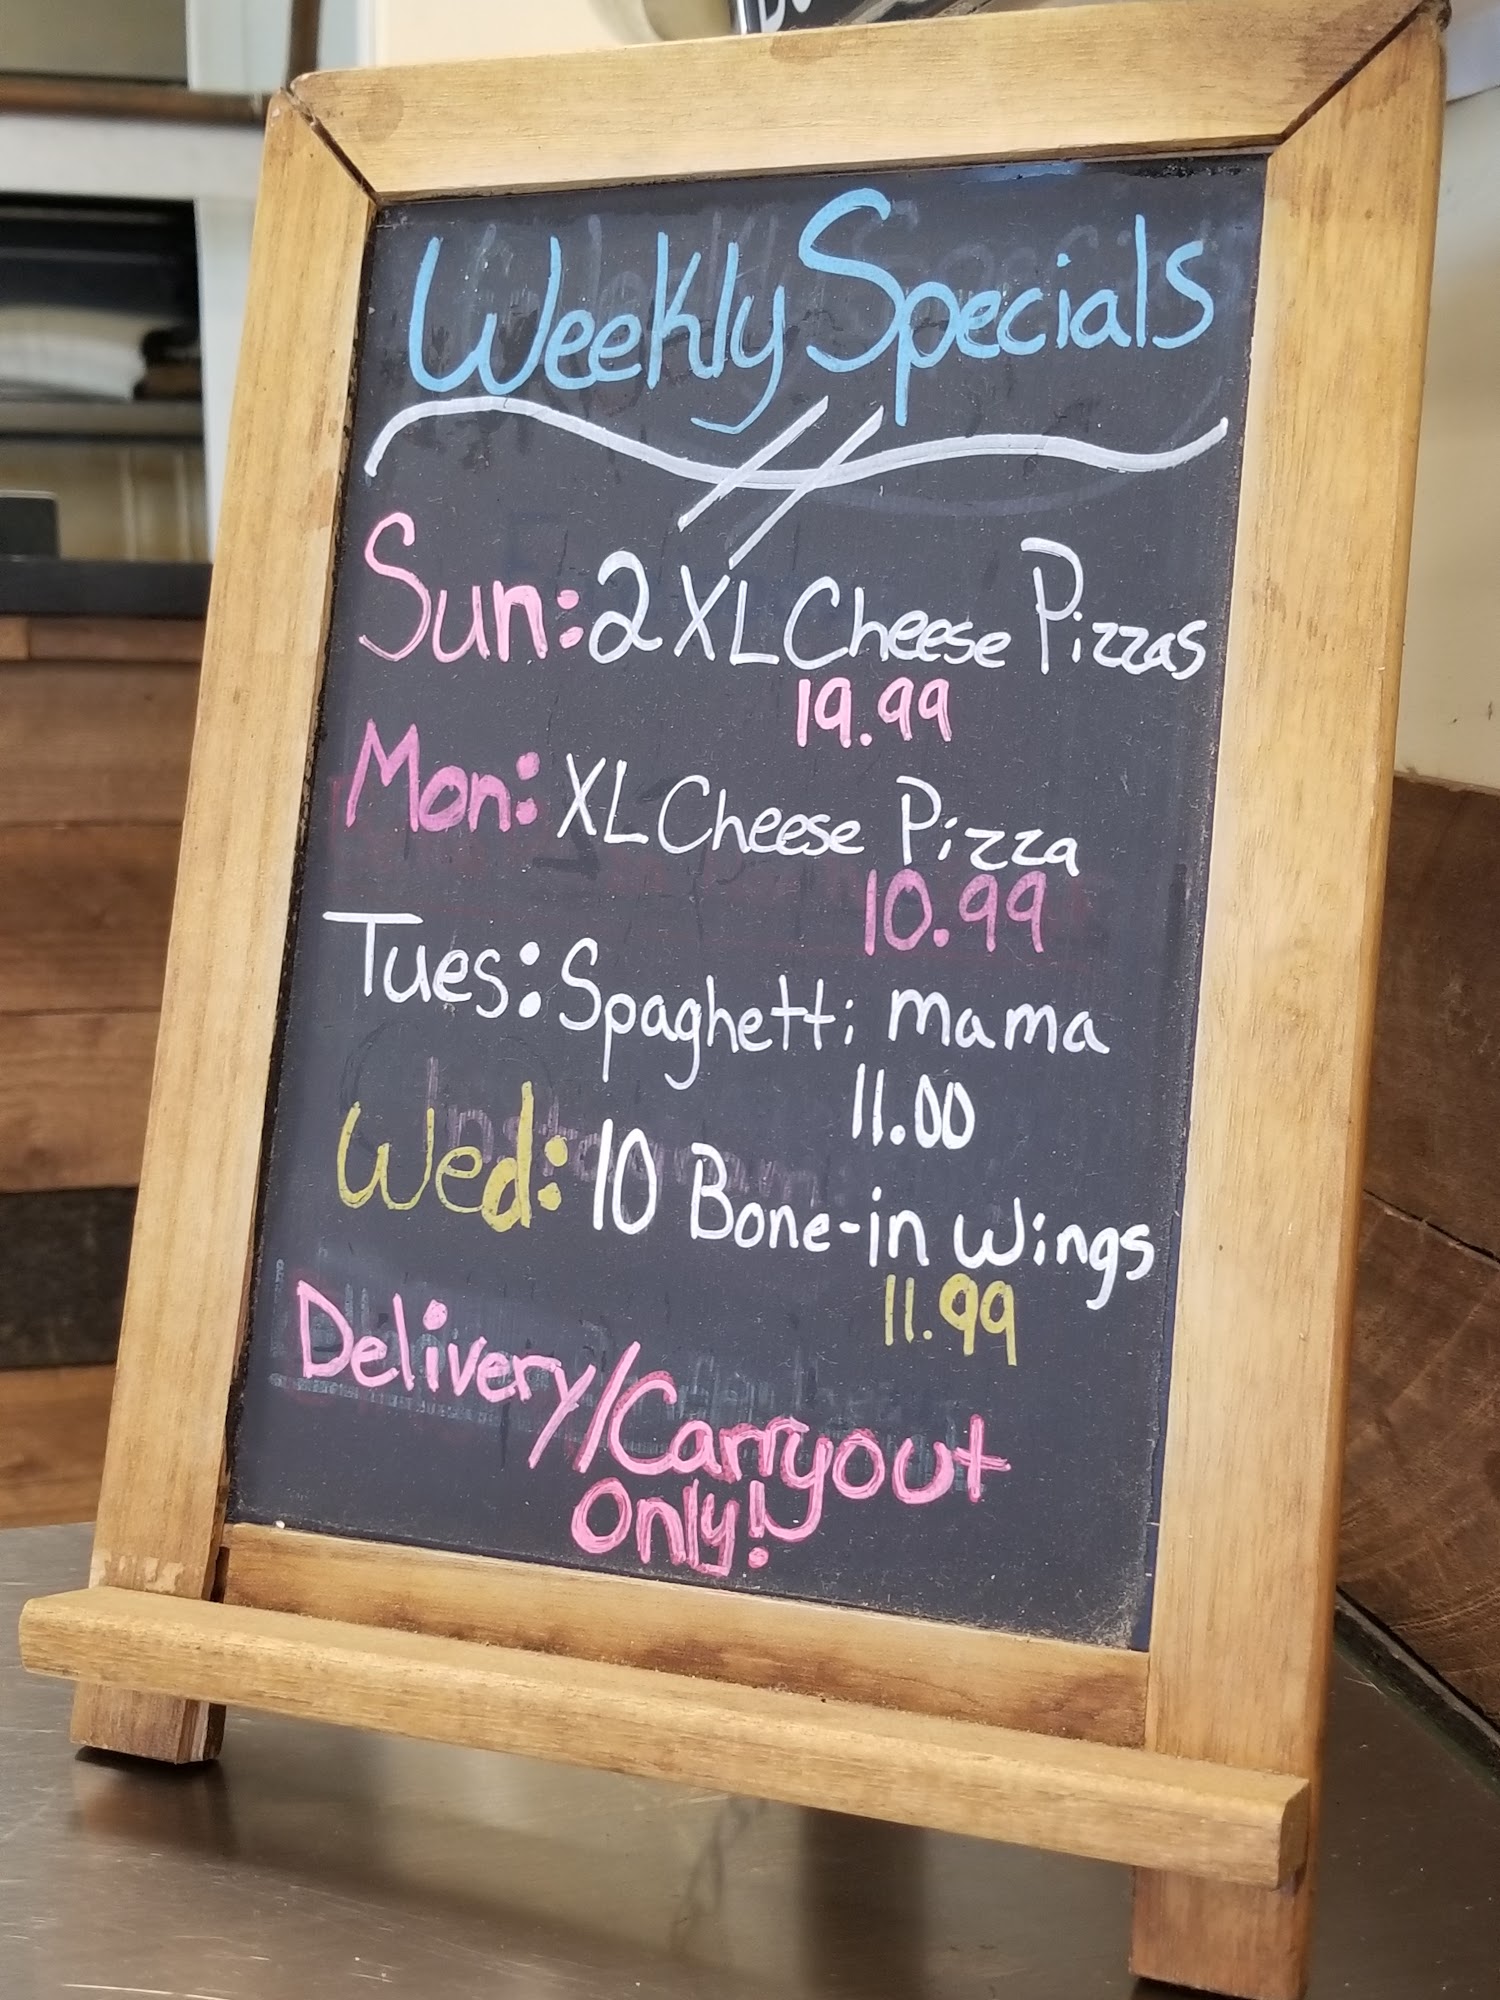 Weekly Specials
Sun: 2 XL Cheese Pizzas
19.99
Mon: XL Cheese Pizza
10.99
Tues: Spaghetti mama
11.00
Wed: 10 Bone-in Wings
11.99
Delivery/Carryout
Only!